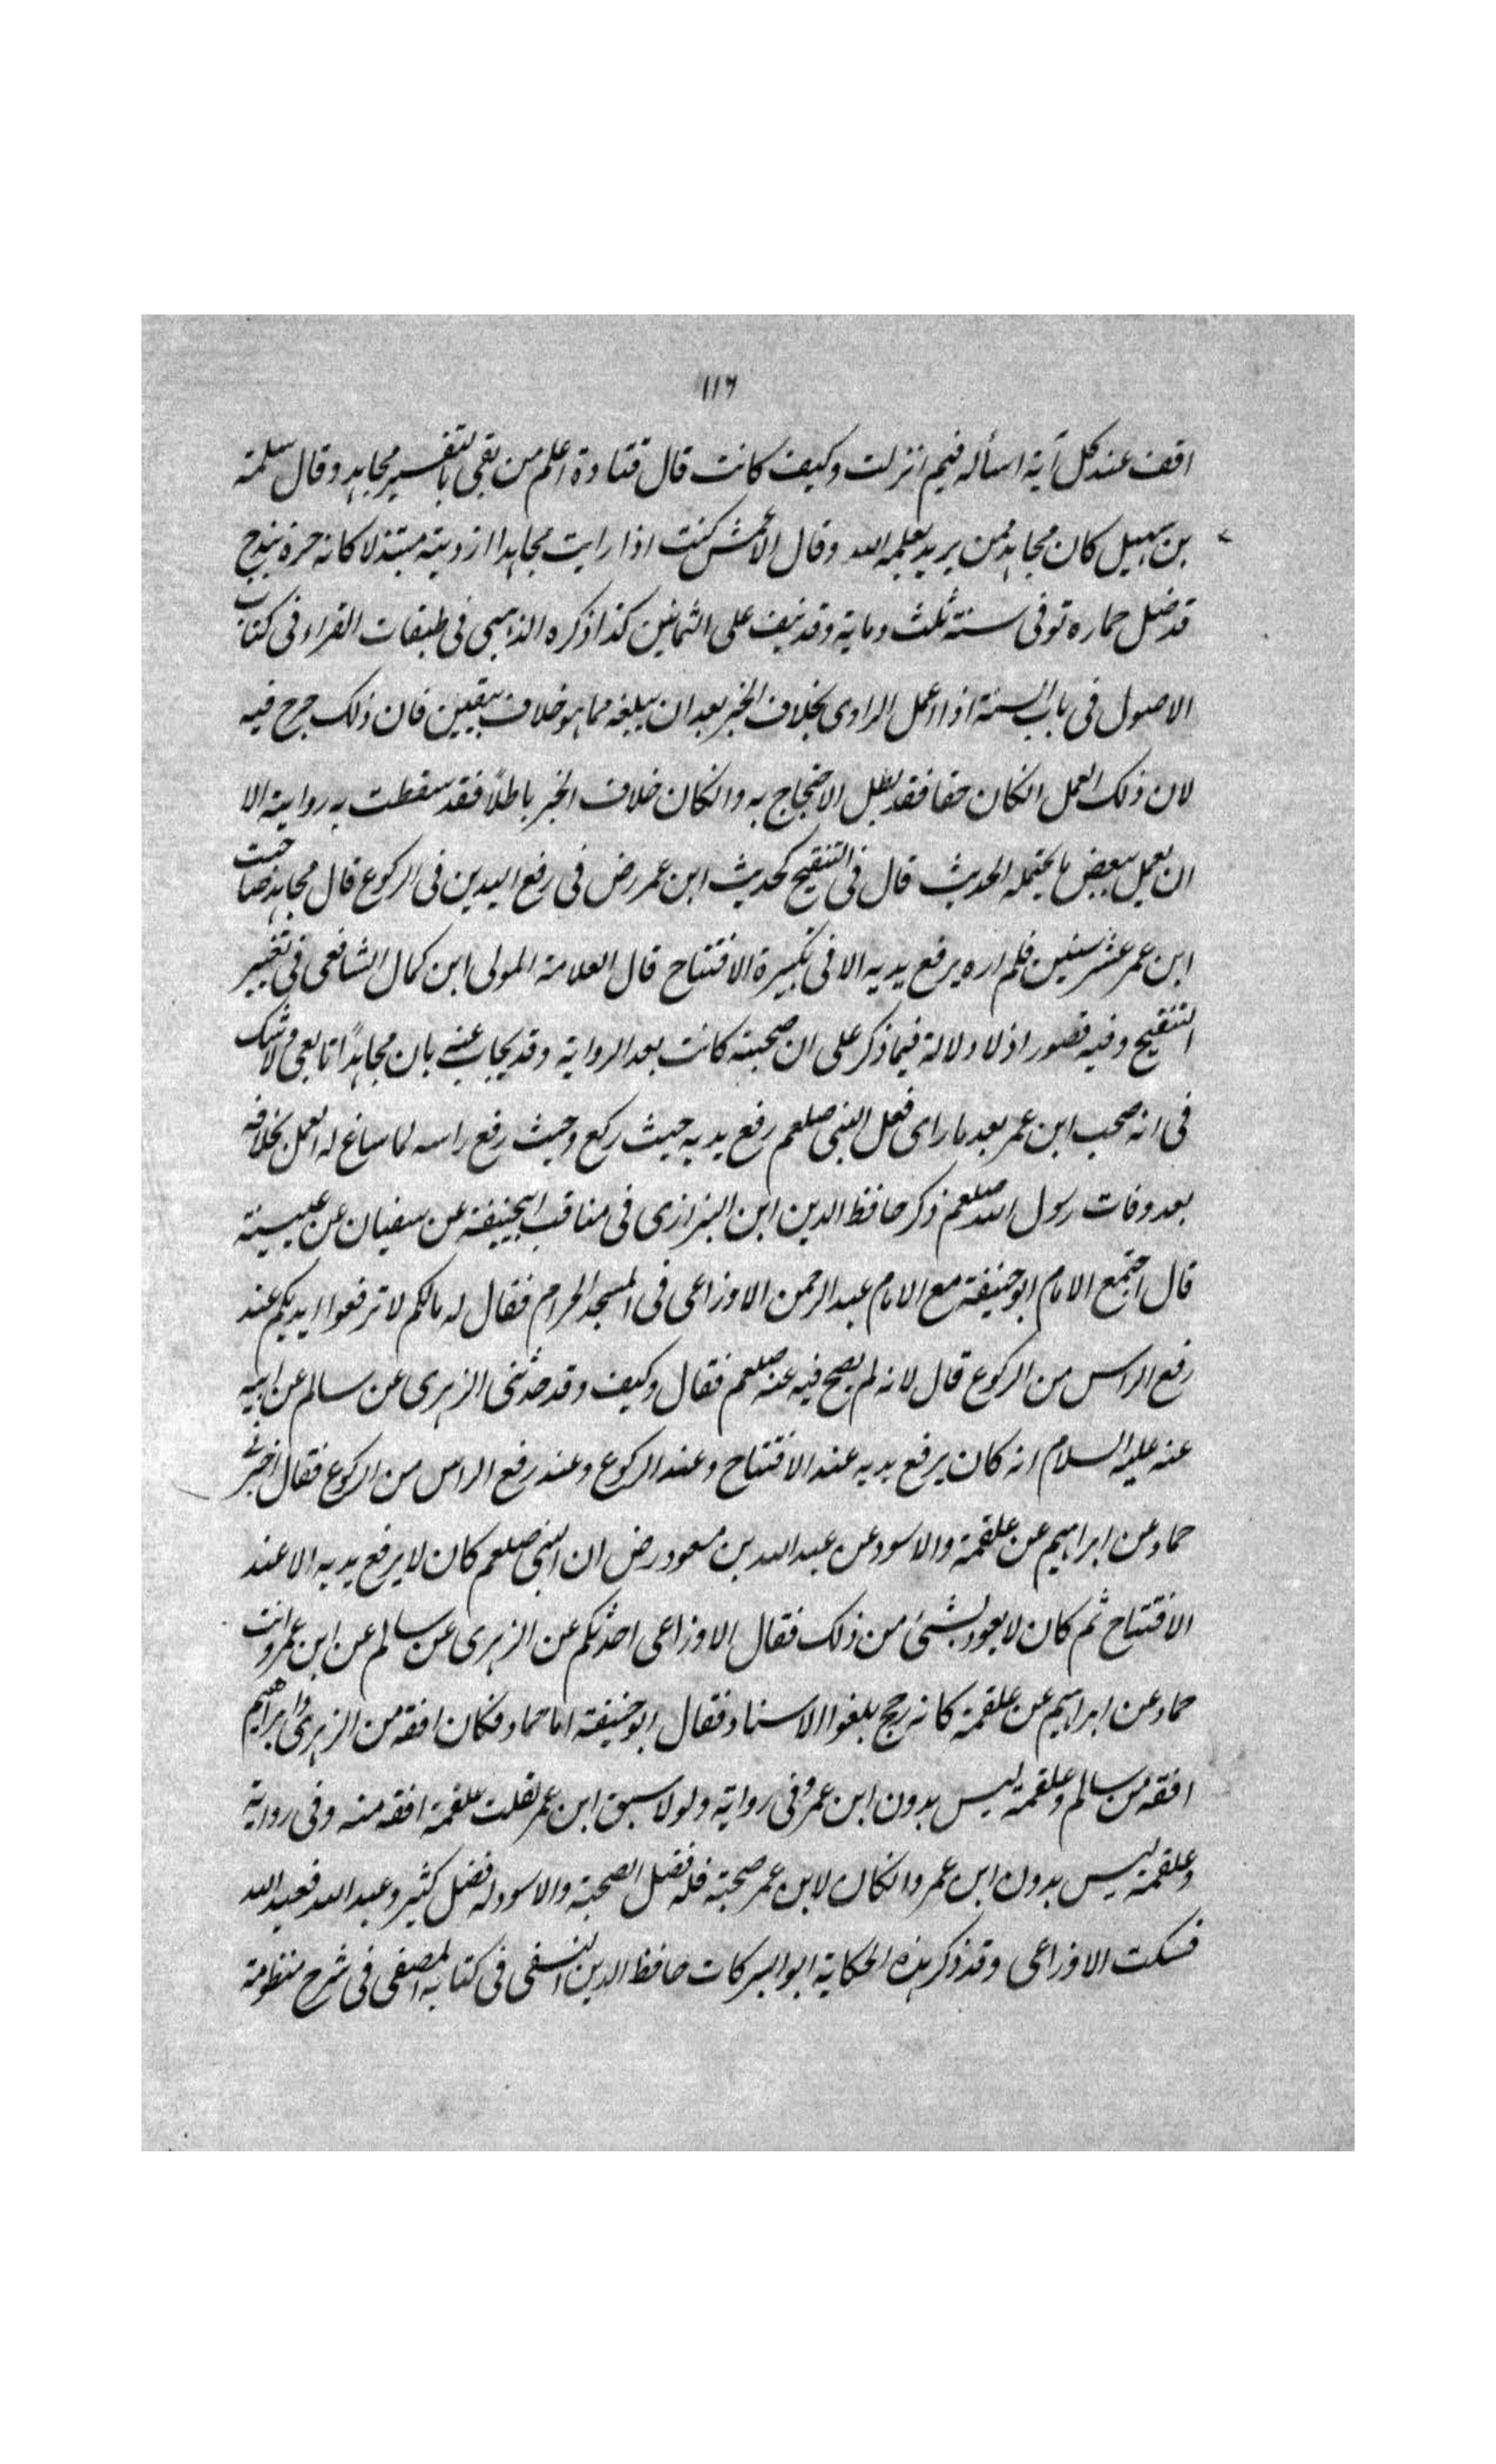 ١١٦
اقف عند كل آية اسأله فيم انزلت وكيف كانت قال قتادة اعلم من بقى بالتفسير مجاهد وقال سلمة
بن كهيل كان مجاهد ممن يريد بعلمه الله وقال الاعمش كنت اذا رايت مجاهدا ازدريته مبتذلا كانه خربندج
قد ضل حماره توفى سنة ثلث وماية وقد نيف على الثمانين كذا ذكره الذهبى فى طبقات القراء وفى كتاب
الاصول فى باب السنة اذا عمل الراوى بخلاف الخبر بعد ان يبلغه مما هو خلاف بيقين فان ذلك جرح فيه
لان ذلك العمل انكان حقا فقد بطل الاحتجاج به وانكان خلاف الخبر باطلاً فقد سقطت به روايته الا
ان يعمل ببعض ما يحتمله الحديث قال فى التنقيح كحديث ابن عمر رض فى رفع اليدين فى الركوع قال مجاهد صاحبت
ابن عمر عشر سنين فلم اره يرفع يديه الا فى تكبيرة الافتتاح قال العلامة المولى ابن كمال الشافعى فى تغيير
التنقيح وفيه قصور اذ لا دلالة فيما ذكر على ان صحبته كانت بعد الرواية وقد يجاب عنه بان مجاهداً تابعى ولا شك
فى انه صحب ابن عمر بعد ما راى فعل النبى صلعم رفع يديه حيث ركع وحيث رفع راسه لما ساغ له العمل بخلافه
بعد وفات رسول الله صلعم ذكر حافظ الدين ابن البزازى فى مناقب ابيحنيفة عن سفيان عن عيينة
قال اجتمع الامام ابو حنيفة مع الامام عبد الرحمن الاوزاعى فى المسجد الحرام فقال له مالكم لا ترفعوا ايديكم عند
رفع الراس من الركوع قال لانه لم يصح فيه عنه صلعم فقال وكيف وقد حدثنى الزهرى عن سالم عن ابيه
عنه عليه السلام انه كان يرفع يديه عند الافتتاح وعند الركوع وعند رفع الراس من الركوع فقال اخبرنى
حماد عن ابراهيم عن علقمة والاسود عن عبد الله بن مسعود رض ان النبى صلعم كان لا يرفع يديه الا عند
الافتتاح ثم كان لا يعود بشئ من ذلك فقال الاوزاعى احدثكم عن الزهرى عن سالم عن ابن عمر وانت
حماد عن ابراهيم عن علقمة كانه رجح بلغوا الاسناد فقال ابو حنيفة اما حماد فكان افقه من الزهرى وابراهيم
افقه من سالم وعلقمة ليس بدون ابن عمر وفى رواية ولولا سبق ابن عمر لقلت علقمة افقه منه وفى رواية
وعلقمة ليس بدون ابن عمر وانكان لابن عمر صحبة فله فضل الصحبة والاسود له فضل كثير وعبد الله فعبد الله
فسكت الاوزاعى وقد ذكر هذه الحكاية ابو البركات حافظ الدين النسفى فى كتابه المصفى فى شرح منظومة